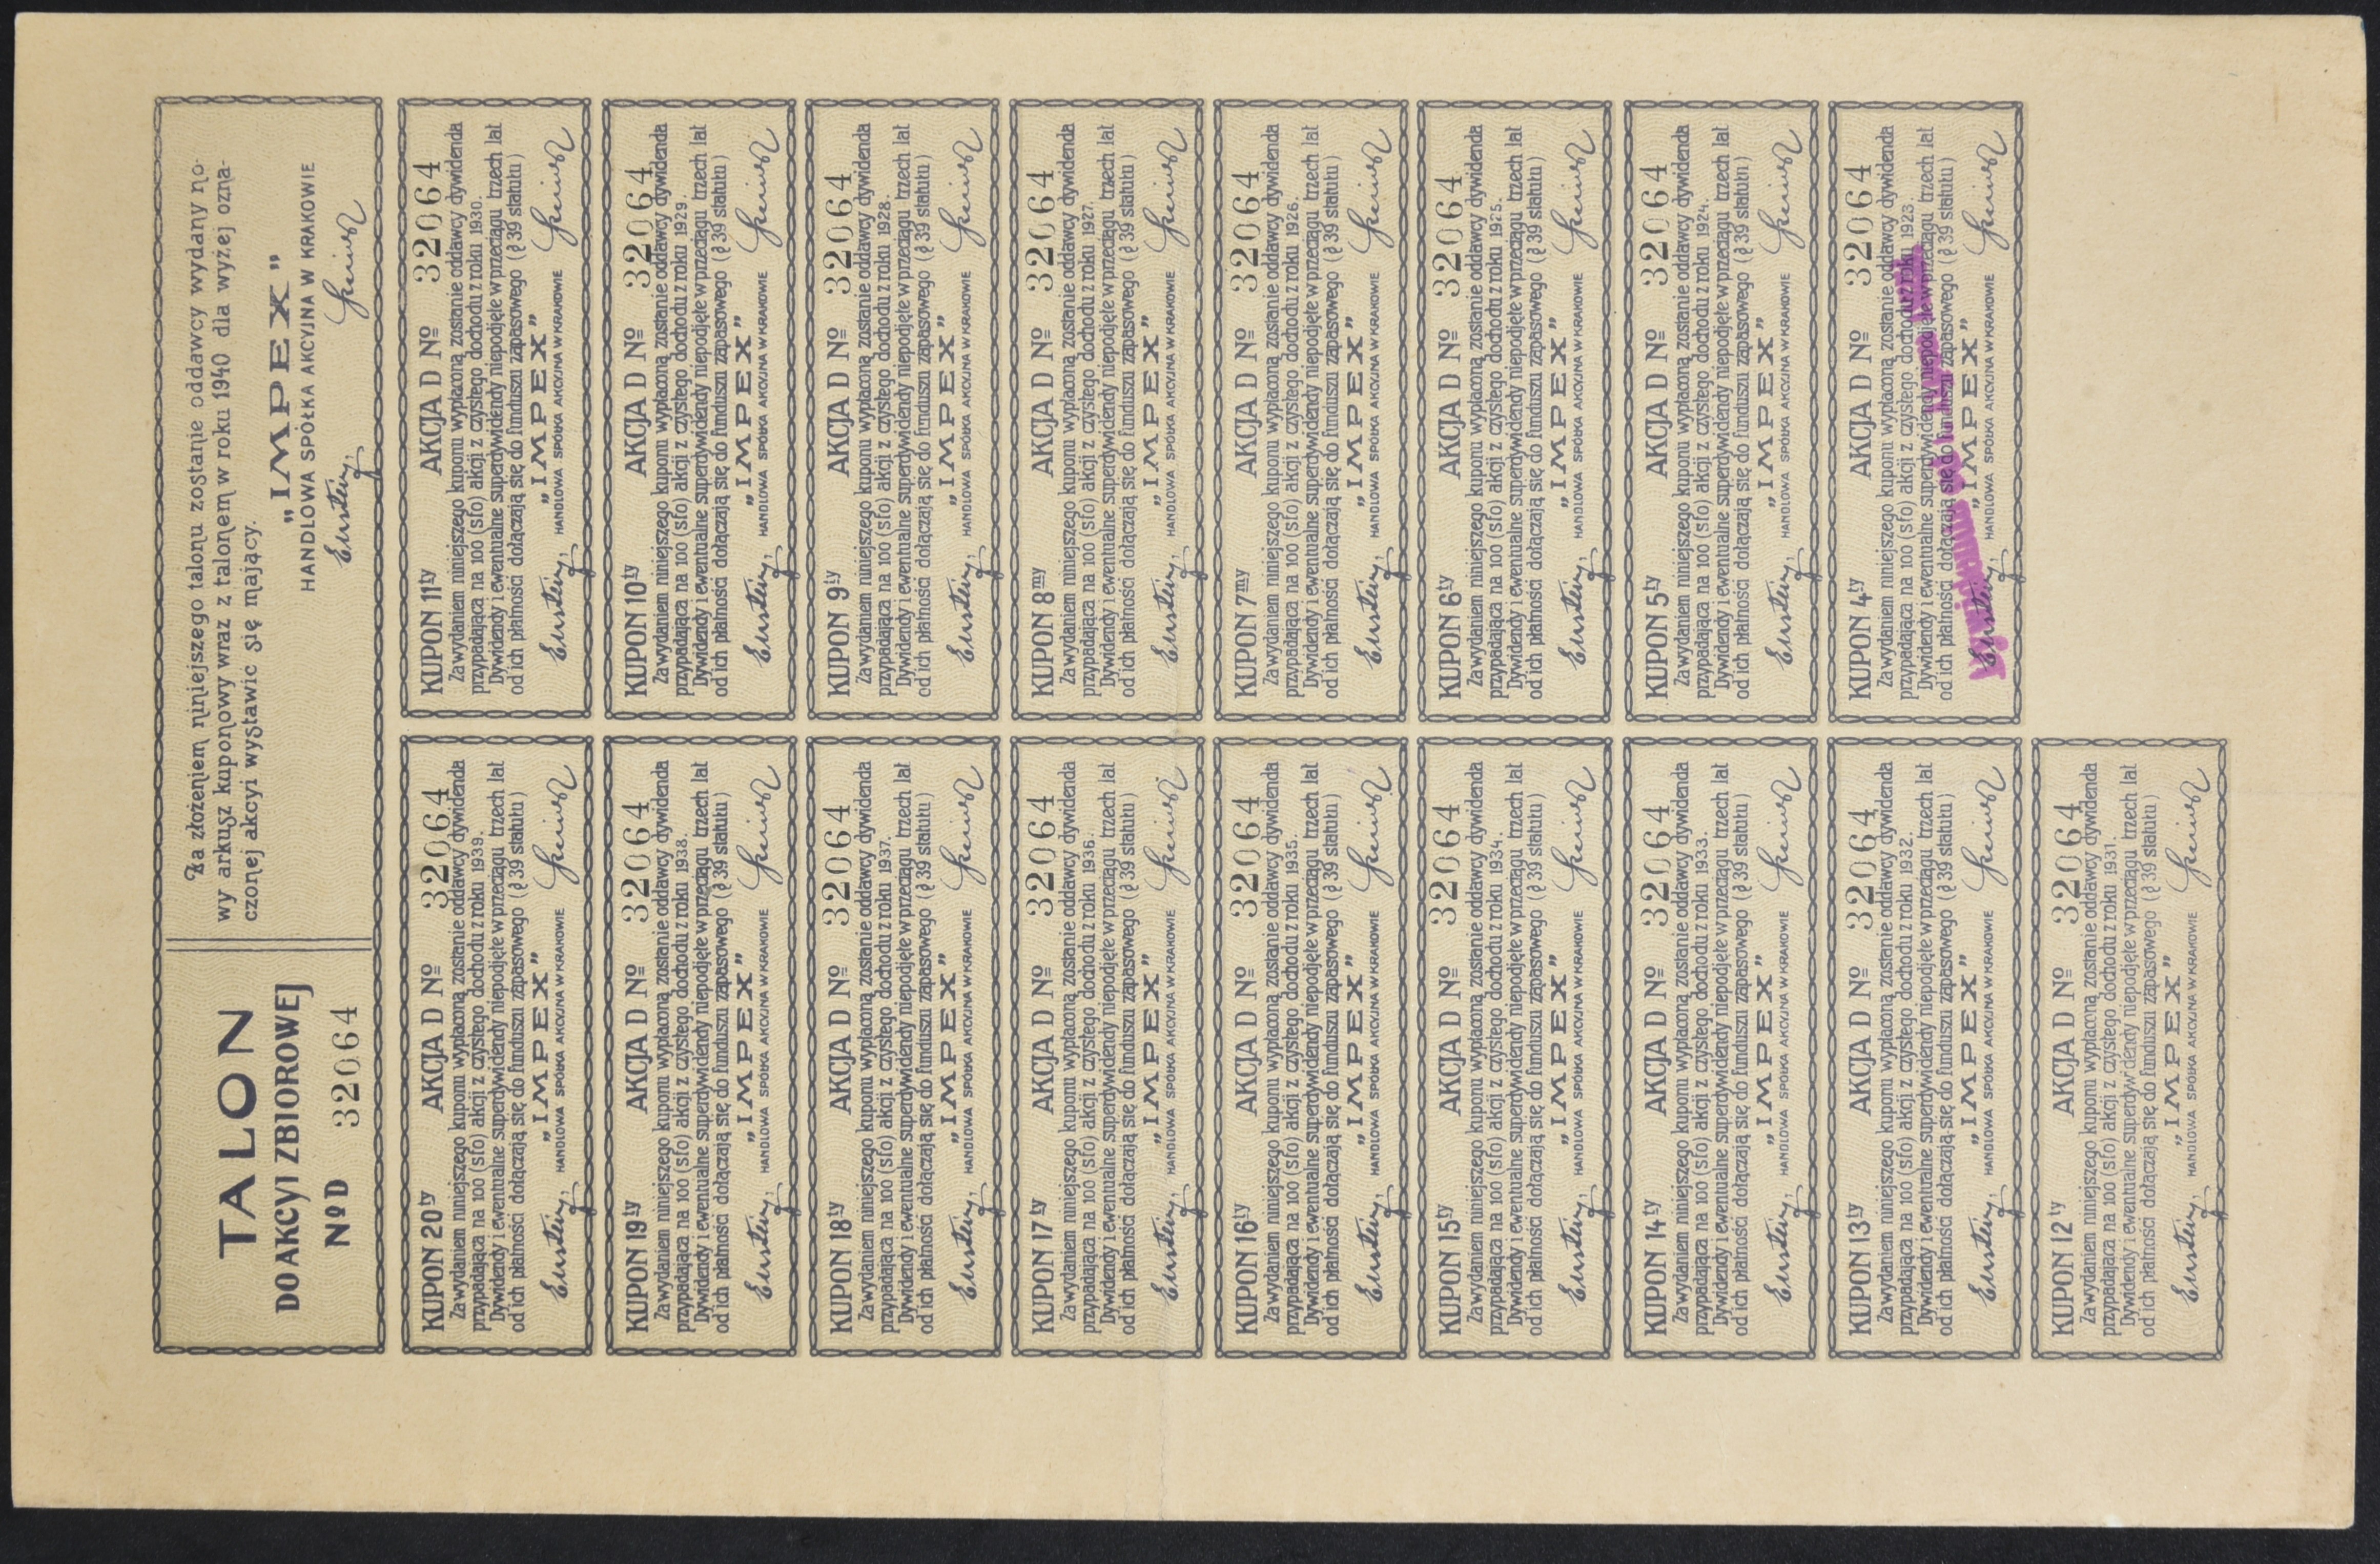 TALON
DO AKCYI ZBIOROWEJ
Nº D 32064
Za złożeniem niniejszego talonu zostanie oddawcy wydany no-
wy arkusz kuponowy wraz z talonem w roku 1940 dla wyżej ozna-
czonej akcyi wystawic się mający.
„IMPEX”
HANDLOWA SPÓŁKA AKCYJNA W KRAKOWIE
KUPON 20ty AKCJA D Nº 32064
Za wydaniem niniejszego kuponu wypłaconą zostanie oddawcy dywidenda
przypadająca na 100 (sto) akcji z czystego dochodu z roku 1939.
Dywidendy i ewentualne superdywidendy niepodjęte w przeciągu trzech lat
od ich płatności dołączają się do funduszu zapasowego (§ 39 statutu)
„IMPEX”
HANDLOWA SPÓŁKA AKCYJNA W KRAKOWIE
KUPON 11ty AKCJA D Nº 32064
Za wydaniem niniejszego kuponu wypłaconą zostanie oddawcy dywidenda
przypadająca na 100 (sto) akcji z czystego dochodu z roku 1930.
Dywidendy i ewentualne superdywidendy niepodjęte w przeciągu trzech lat
od ich płatności dołączają się do funduszu zapasowego (§ 39 statutu)
„IMPEX”
HANDLOWA SPÓŁKA AKCYJNA W KRAKOWIE
KUPON 19ty AKCJA D Nº 32064
Za wydaniem niniejszego kuponu wypłaconą zostanie oddawcy dywidenda
przypadająca na 100 (sto) akcji z czystego dochodu z roku 1938.
Dywidendy i ewentualne superdywidendy niepodjęte w przeciągu trzech lat
od ich płatności dołączają się do funduszu zapasowego (§ 39 statutu)
„IMPEX”
HANDLOWA SPÓŁKA AKCYJNA W KRAKOWIE
KUPON 10ty AKCJA D Nº 32064
Za wydaniem niniejszego kuponu wypłaconą zostanie oddawcy dywidenda
przypadająca na 100 (sto) akcji z czystego dochodu z roku 1929.
Dywidendy i ewentualne superdywidendy niepodjęte w przeciągu trzech lat
od ich płatności dołączają się do funduszu zapasowego (§ 39 statutu)
„IMPEX”
HANDLOWA SPÓŁKA AKCYJNA W KRAKOWIE
KUPON 18ty AKCJA D Nº 32064
Za wydaniem niniejszego kuponu wypłaconą zostanie oddawcy dywidenda
przypadająca na 100 (sto) akcji z czystego dochodu z roku 1937.
Dywidendy i ewentualne superdywidendy niepodjęte w przeciągu trzech lat
od ich płatności dołączają się do funduszu zapasowego (§ 39 statutu)
„IMPEX”
HANDLOWA SPÓŁKA AKCYJNA W KRAKOWIE
KUPON 9ty AKCJA D Nº 32064
Za wydaniem niniejszego kuponu wypłaconą zostanie oddawcy dywidenda
przypadająca na 100 (sto) akcji z czystego dochodu z roku 1928.
Dywidendy i ewentualne superdywidendy niepodjęte w przeciągu trzech lat
od ich płatności dołączają się do funduszu zapasowego (§ 39 statutu)
„IMPEX”
HANDLOWA SPÓŁKA AKCYJNA W KRAKOWIE
KUPON 17ty AKCJA D Nº 32064
Za wydaniem niniejszego kuponu wypłaconą zostanie oddawcy dywidenda
przypadająca na 100 (sto) akcji z czystego dochodu z roku 1936.
Dywidendy i ewentualne superdywidendy niepodjęte w przeciągu trzech lat
od ich płatności dołączają się do funduszu zapasowego (§ 39 statutu)
„IMPEX”
HANDLOWA SPÓŁKA AKCYJNA W KRAKOWIE
KUPON 8my AKCJA D Nº 32064
Za wydaniem niniejszego kuponu wypłaconą zostanie oddawcy dywidenda
przypadająca na 100 (sto) akcji z czystego dochodu z roku 1927.
Dywidendy i ewentualne superdywidendy niepodjęte w przeciągu trzech lat
od ich płatności dołączają się do funduszu zapasowego (§ 39 statutu)
„IMPEX”
HANDLOWA SPÓŁKA AKCYJNA W KRAKOWIE
KUPON 16ty AKCJA D Nº 32064
Za wydaniem niniejszego kuponu wypłaconą zostanie oddawcy dywidenda
przypadająca na 100 (sto) akcji z czystego dochodu z roku 1935.
Dywidendy i ewentualne superdywidendy niepodjęte w przeciągu trzech lat
od ich płatności dołączają się do funduszu zapasowego (§ 39 statutu)
„IMPEX”
HANDLOWA SPÓŁKA AKCYJNA W KRAKOWIE
KUPON 7my AKCJA D Nº 32064
Za wydaniem niniejszego kuponu wypłaconą zostanie oddawcy dywidenda
przypadająca na 100 (sto) akcji z czystego dochodu z roku 1926.
Dywidendy i ewentualne superdywidendy niepodjęte w przeciągu trzech lat
od ich płatności dołączają się do funduszu zapasowego (§ 39 statutu)
„IMPEX”
HANDLOWA SPÓŁKA AKCYJNA W KRAKOWIE
KUPON 15ty AKCJA D Nº 32064
Za wydaniem niniejszego kuponu wypłaconą zostanie oddawcy dywidenda
przypadająca na 100 (sto) akcji z czystego dochodu z roku 1934.
Dywidendy i ewentualne superdywidendy niepodjęte w przeciągu trzech lat
od ich płatności dołączają się do funduszu zapasowego (§ 39 statutu)
„IMPEX”
HANDLOWA SPÓŁKA AKCYJNA W KRAKOWIE
KUPON 6ty AKCJA D Nº 32064
Za wydaniem niniejszego kuponu wypłaconą zostanie oddawcy dywidenda
przypadająca na 100 (sto) akcji z czystego dochodu z roku 1925.
Dywidendy i ewentualne superdywidendy niepodjęte w przeciągu trzech lat
od ich płatności dołączają się do funduszu zapasowego (§ 39 statutu)
„IMPEX”
HANDLOWA SPÓŁKA AKCYJNA W KRAKOWIE
KUPON 14ty AKCJA D Nº 32064
Za wydaniem niniejszego kuponu wypłaconą zostanie oddawcy dywidenda
przypadająca na 100 (sto) akcji z czystego dochodu z roku 1933.
Dywidendy i ewentualne superdywidendy niepodjęte w przeciągu trzech lat
od ich płatności dołączają się do funduszu zapasowego (§ 39 statutu)
„IMPEX”
HANDLOWA SPÓŁKA AKCYJNA W KRAKOWIE
KUPON 5ty AKCJA D Nº 32064
Za wydaniem niniejszego kuponu wypłaconą zostanie oddawcy dywidenda
przypadająca na 100 (sto) akcji z czystego dochodu z roku 1924.
Dywidendy i ewentualne superdywidendy niepodjęte w przeciągu trzech lat
od ich płatności dołączają się do funduszu zapasowego (§ 39 statutu)
„IMPEX”
HANDLOWA SPÓŁKA AKCYJNA W KRAKOWIE
KUPON 13ty AKCJA D Nº 32064
Za wydaniem niniejszego kuponu wypłaconą zostanie oddawcy dywidenda
przypadająca na 100 (sto) akcji z czystego dochodu z roku 1932.
Dywidendy i ewentualne superdywidendy niepodjęte w przeciągu trzech lat
od ich płatności dołączają się do funduszu zapasowego (§ 39 statutu)
„IMPEX”
HANDLOWA SPÓŁKA AKCYJNA W KRAKOWIE
KUPON 4ty AKCJA D Nº 32064
Za wydaniem niniejszego kuponu wypłaconą zostanie oddawcy dywidenda
przypadająca na 100 (sto) akcji z czystego dochodu z roku 1923.
Dywidendy i ewentualne superdywidendy niepodjęte w przeciągu trzech lat
od ich płatności dołączają się do funduszu zapasowego (§ 39 statutu)
„IMPEX”
HANDLOWA SPÓŁKA AKCYJNA W KRAKOWIE
KUPON 12ty AKCJA D Nº 32064
Za wydaniem niniejszego kuponu wypłaconą zostanie oddawcy dywidenda
przypadająca na 100 (sto) akcji z czystego dochodu z roku 1931.
Dywidendy i ewentualne superdywidendy niepodjęte w przeciągu trzech lat
od ich płatności dołączają się do funduszu zapasowego (§ 39 statutu)
„IMPEX”
HANDLOWA SPÓŁKA AKCYJNA W KRAKOWIE